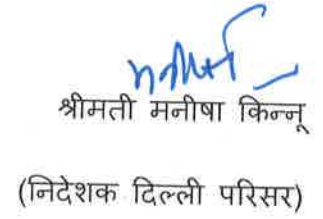 मनीषा
श्रीमती मनीषा किन्नू
(निदेशक दिल्ली परिसर)